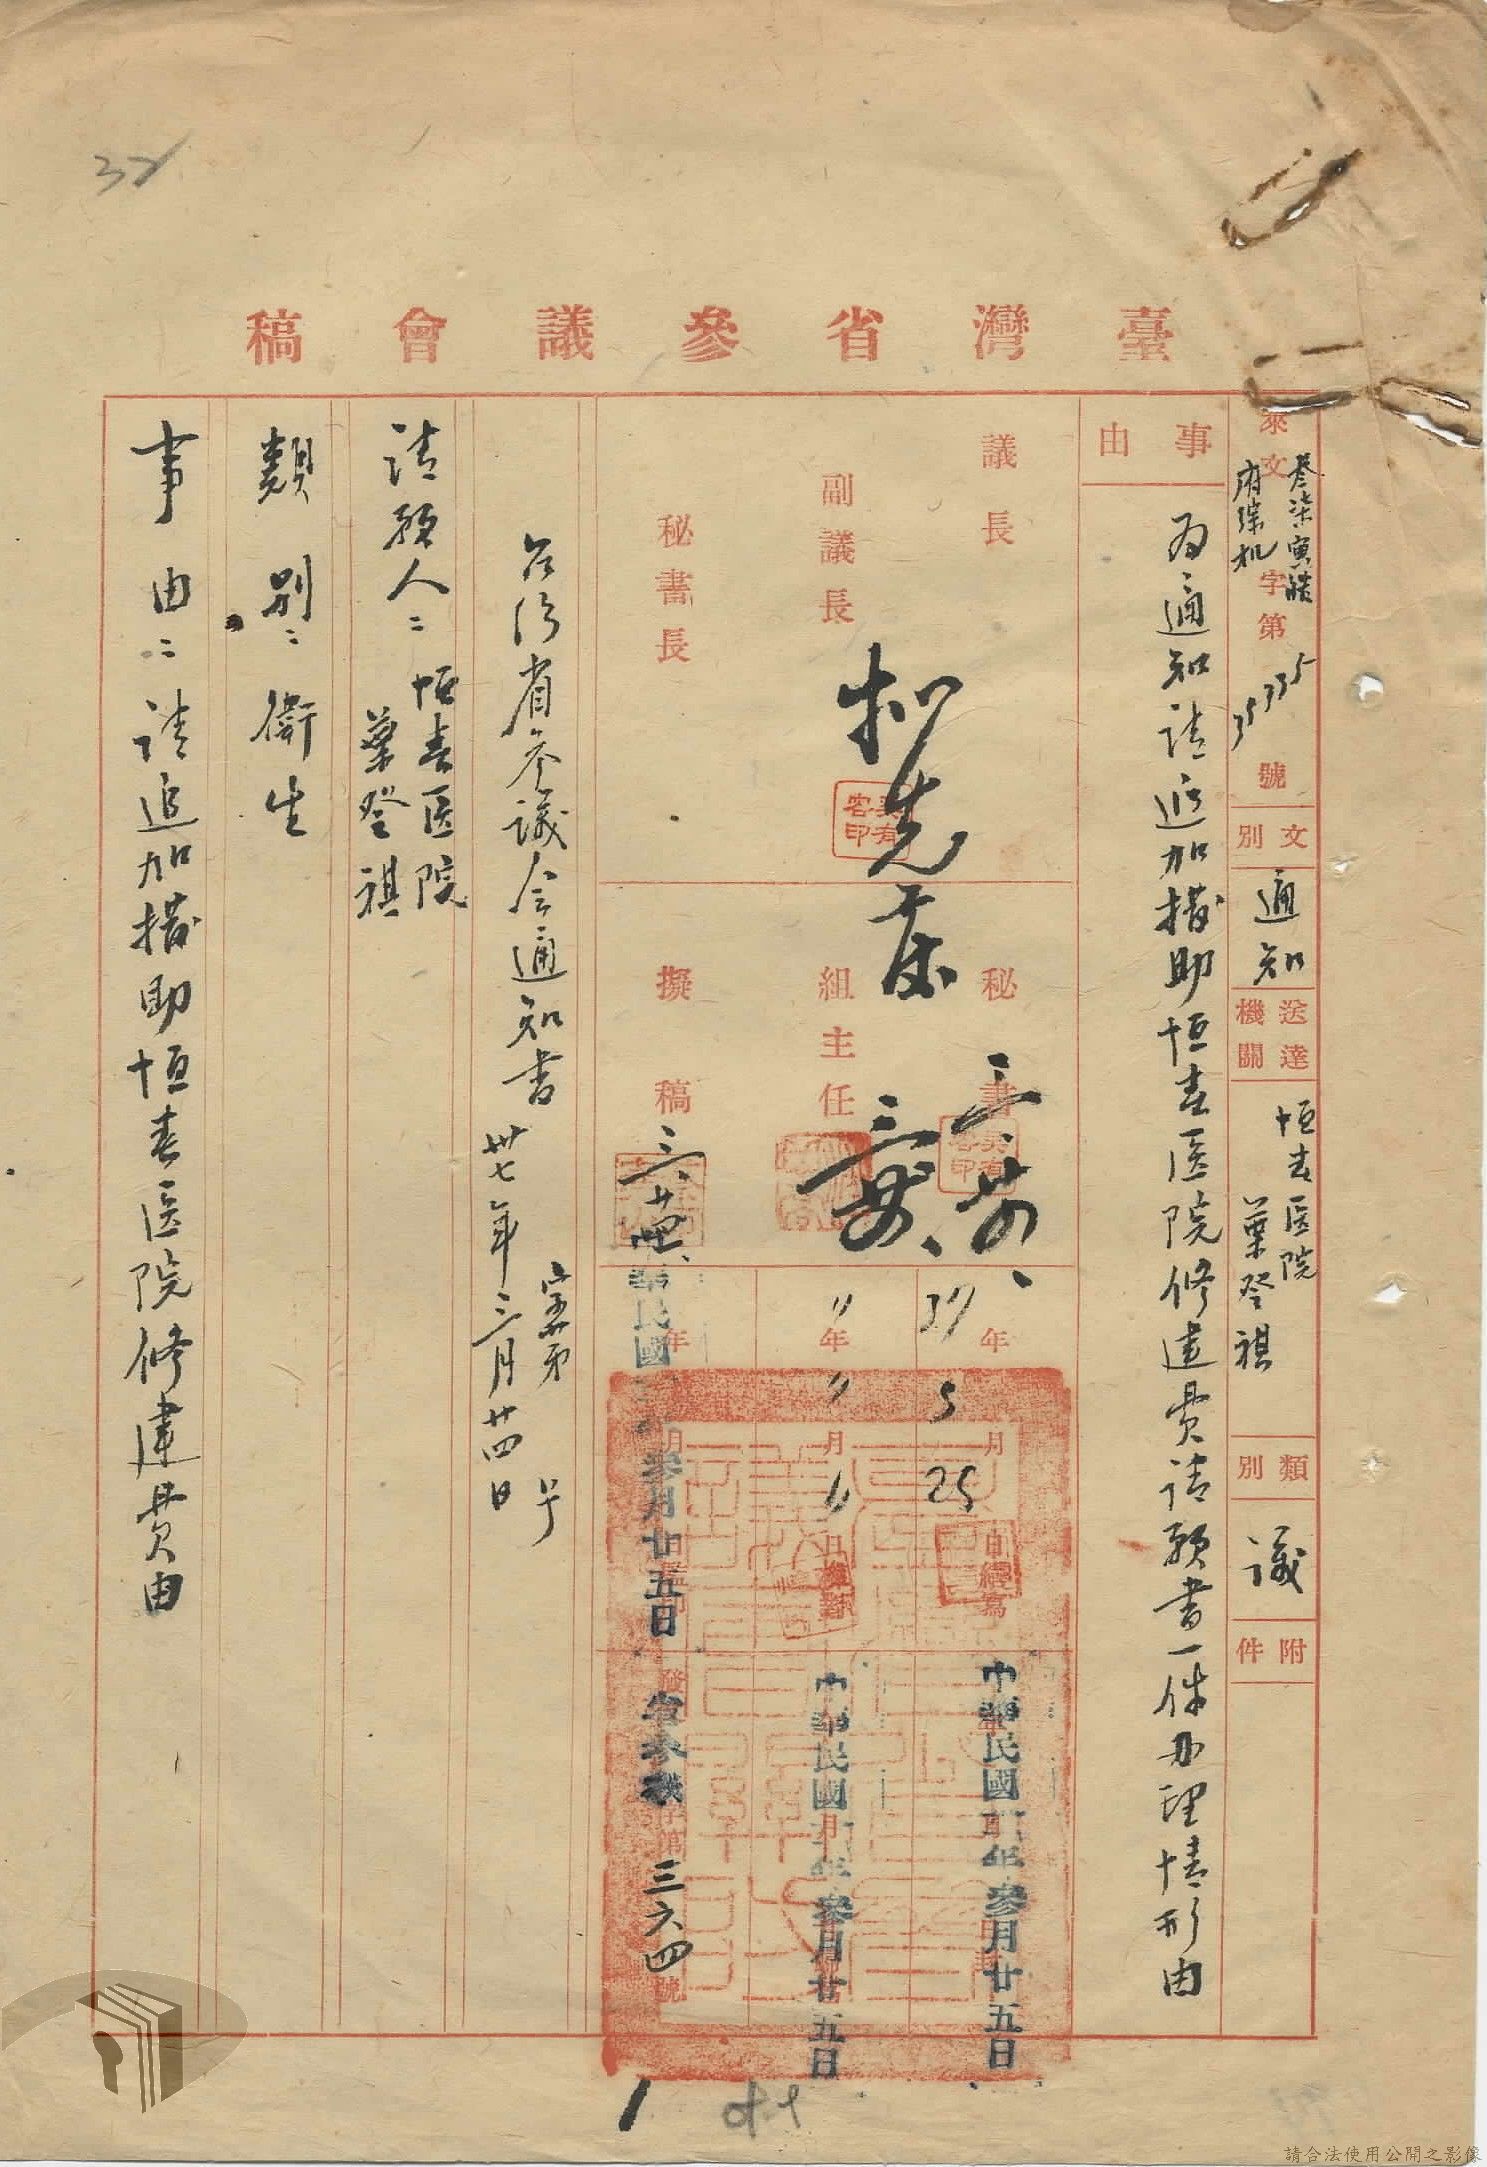 32
臺灣省參議會稿
來文 叁柒寅 府綜机 字第 35335 號
文別 通知
送達機關 恒春医院 葉登祺
類別 議
附件
事由
为通知請追加撥助恒春医院修建費請願書一件办理情形由
議長
副議長
秘書長
秘書
組主任
擬稿
37年3月25日繕寫
〃年〃月〃日校對
年月日蓋印
中華民國 年叁月廿五日
中華民國 年叁月廿五日
華民國 年叁月廿五日
發 省參議 字第三六四號
台湾省参議会通知書
字第 号
卅七年三月廿四日
請願人：恒春医院 葉登祺
類別：衛生
事由：請追加撥助恒春医院修建費由
1
請合法使用公開之影像